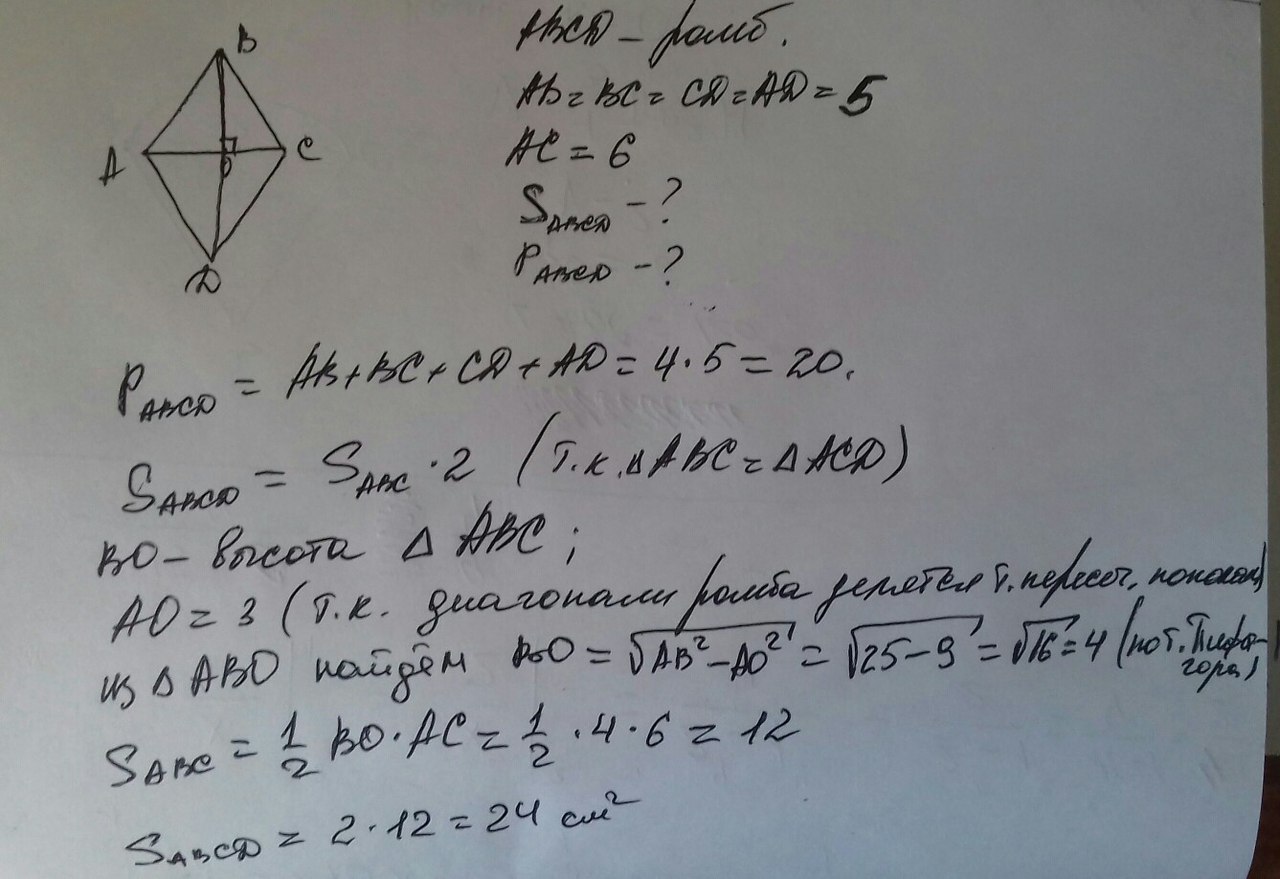 B
A
C
O
D
ABCD – ромб.
AB = BC = CD = AD = 5
AC = 6
S_ABCD – ?
P_ABCD – ?
P_ABCD = AB + BC + CD + AD = 4 · 5 = 20.
S_ABCD = S_ABC · 2 (т.к. △ABC = △ACD)
BO – высота △ ABC ;
AO = 3 (т.к. диагонали ромба делятся т. пересеч. пополам)
из △ ABO найдём BO = √AB² – AO² = √25 – 9 = √16 = 4 (по т. Пифа-
гора)
S_ABC = 1/2 BO · AC = 1/2 · 4 · 6 = 12
S_ABCD = 2 · 12 = 24 см²